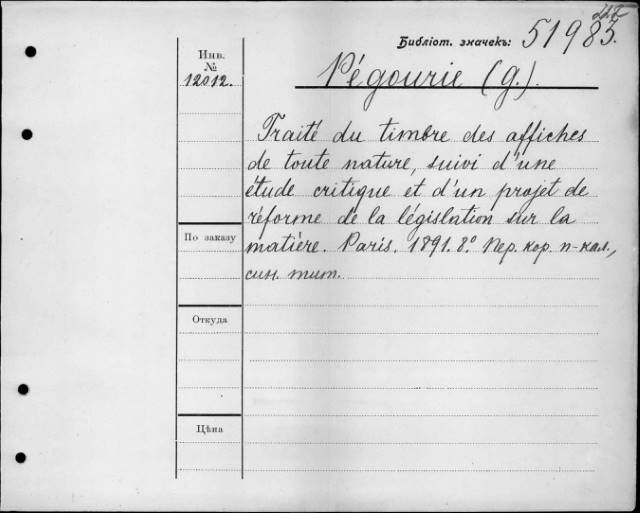 Библіот. значекъ: 51983.
Инв.
№
12012.
Pégourie (G.).
Traité du timbre des affiches
de toute nature, suivi d'une
étude critique et d'un projet de
réforme de la législation sur la
matière. Paris. 1891. 8.° Пер. кор. п-кал.,
син. тит.
По заказу
Откуда
Цѣна